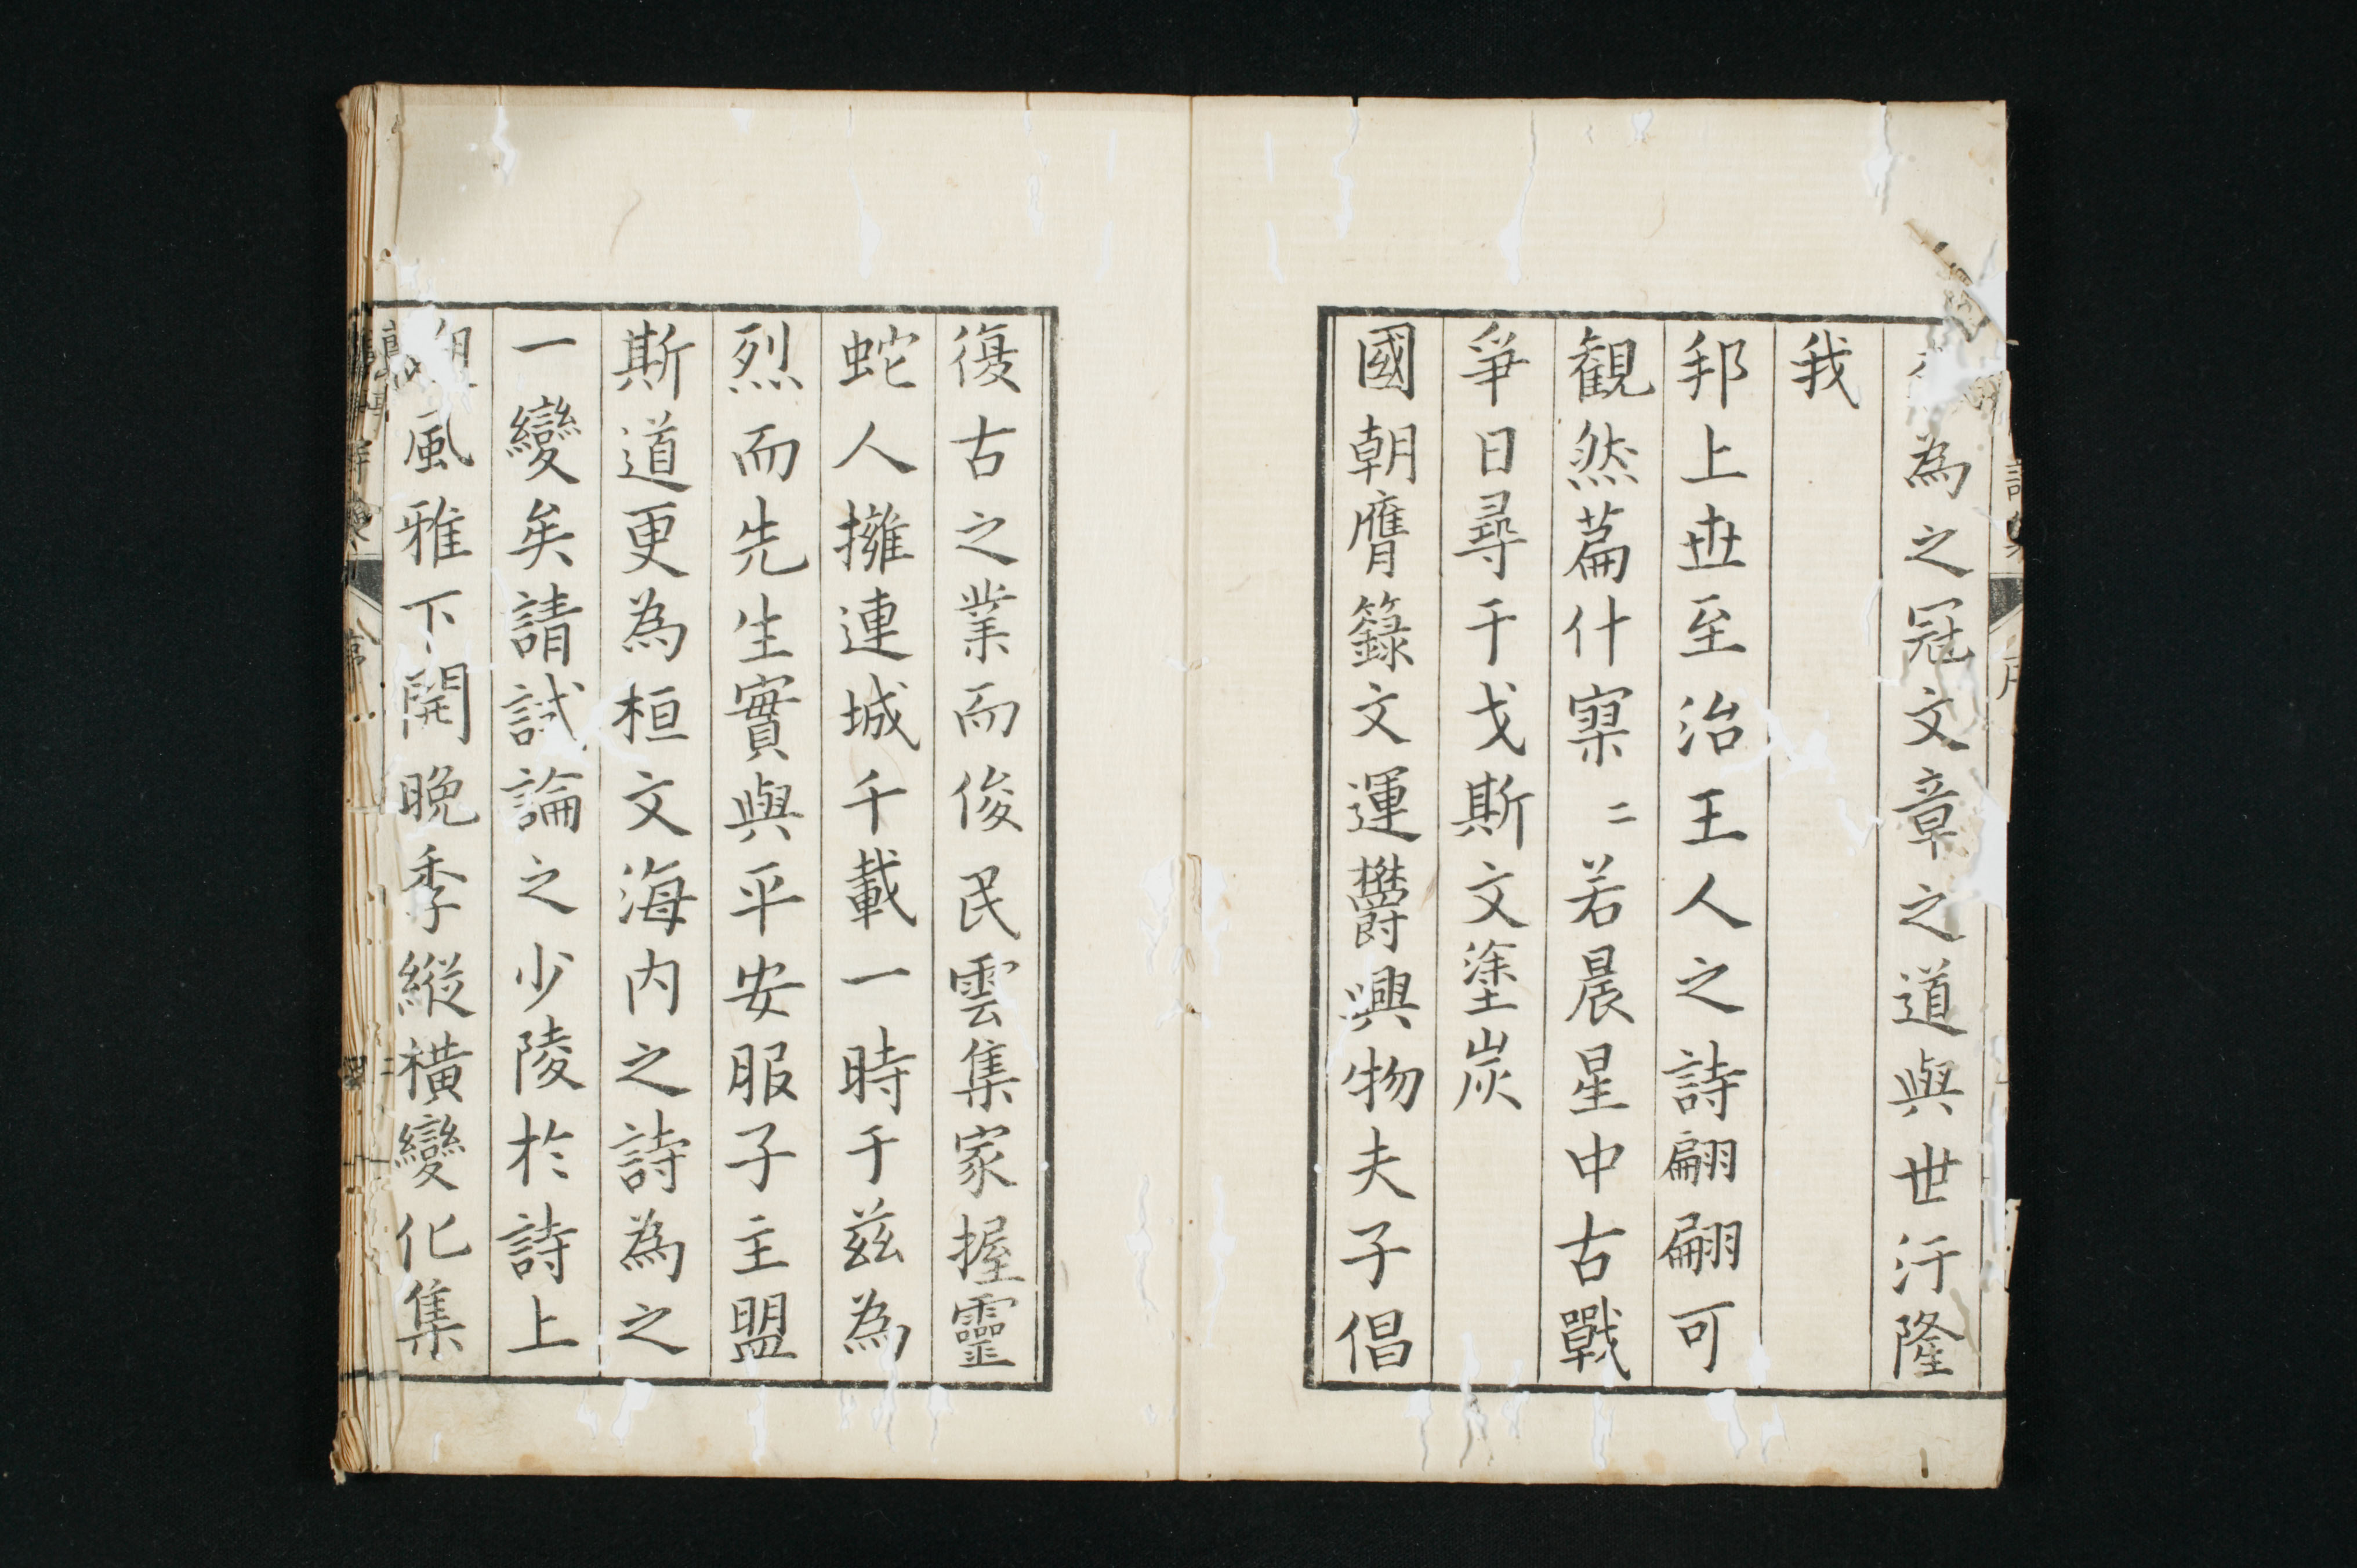 為之冠文章之道與世汙隆
我
邦上世至治王人之詩翩翩可
観然篇什寥〻若晨星中古戰
爭日尋干戈斯文塗炭
國朝膺籙文運欝興物夫子倡
復古之業而俊民雲集家握靈
蛇人擁連城千載一時于茲為
烈而先生實與平安服子主盟
斯道更為桓文海内之詩為之
一變矣請試論之少陵於詩上
風雅下開晩季縱橫變化集